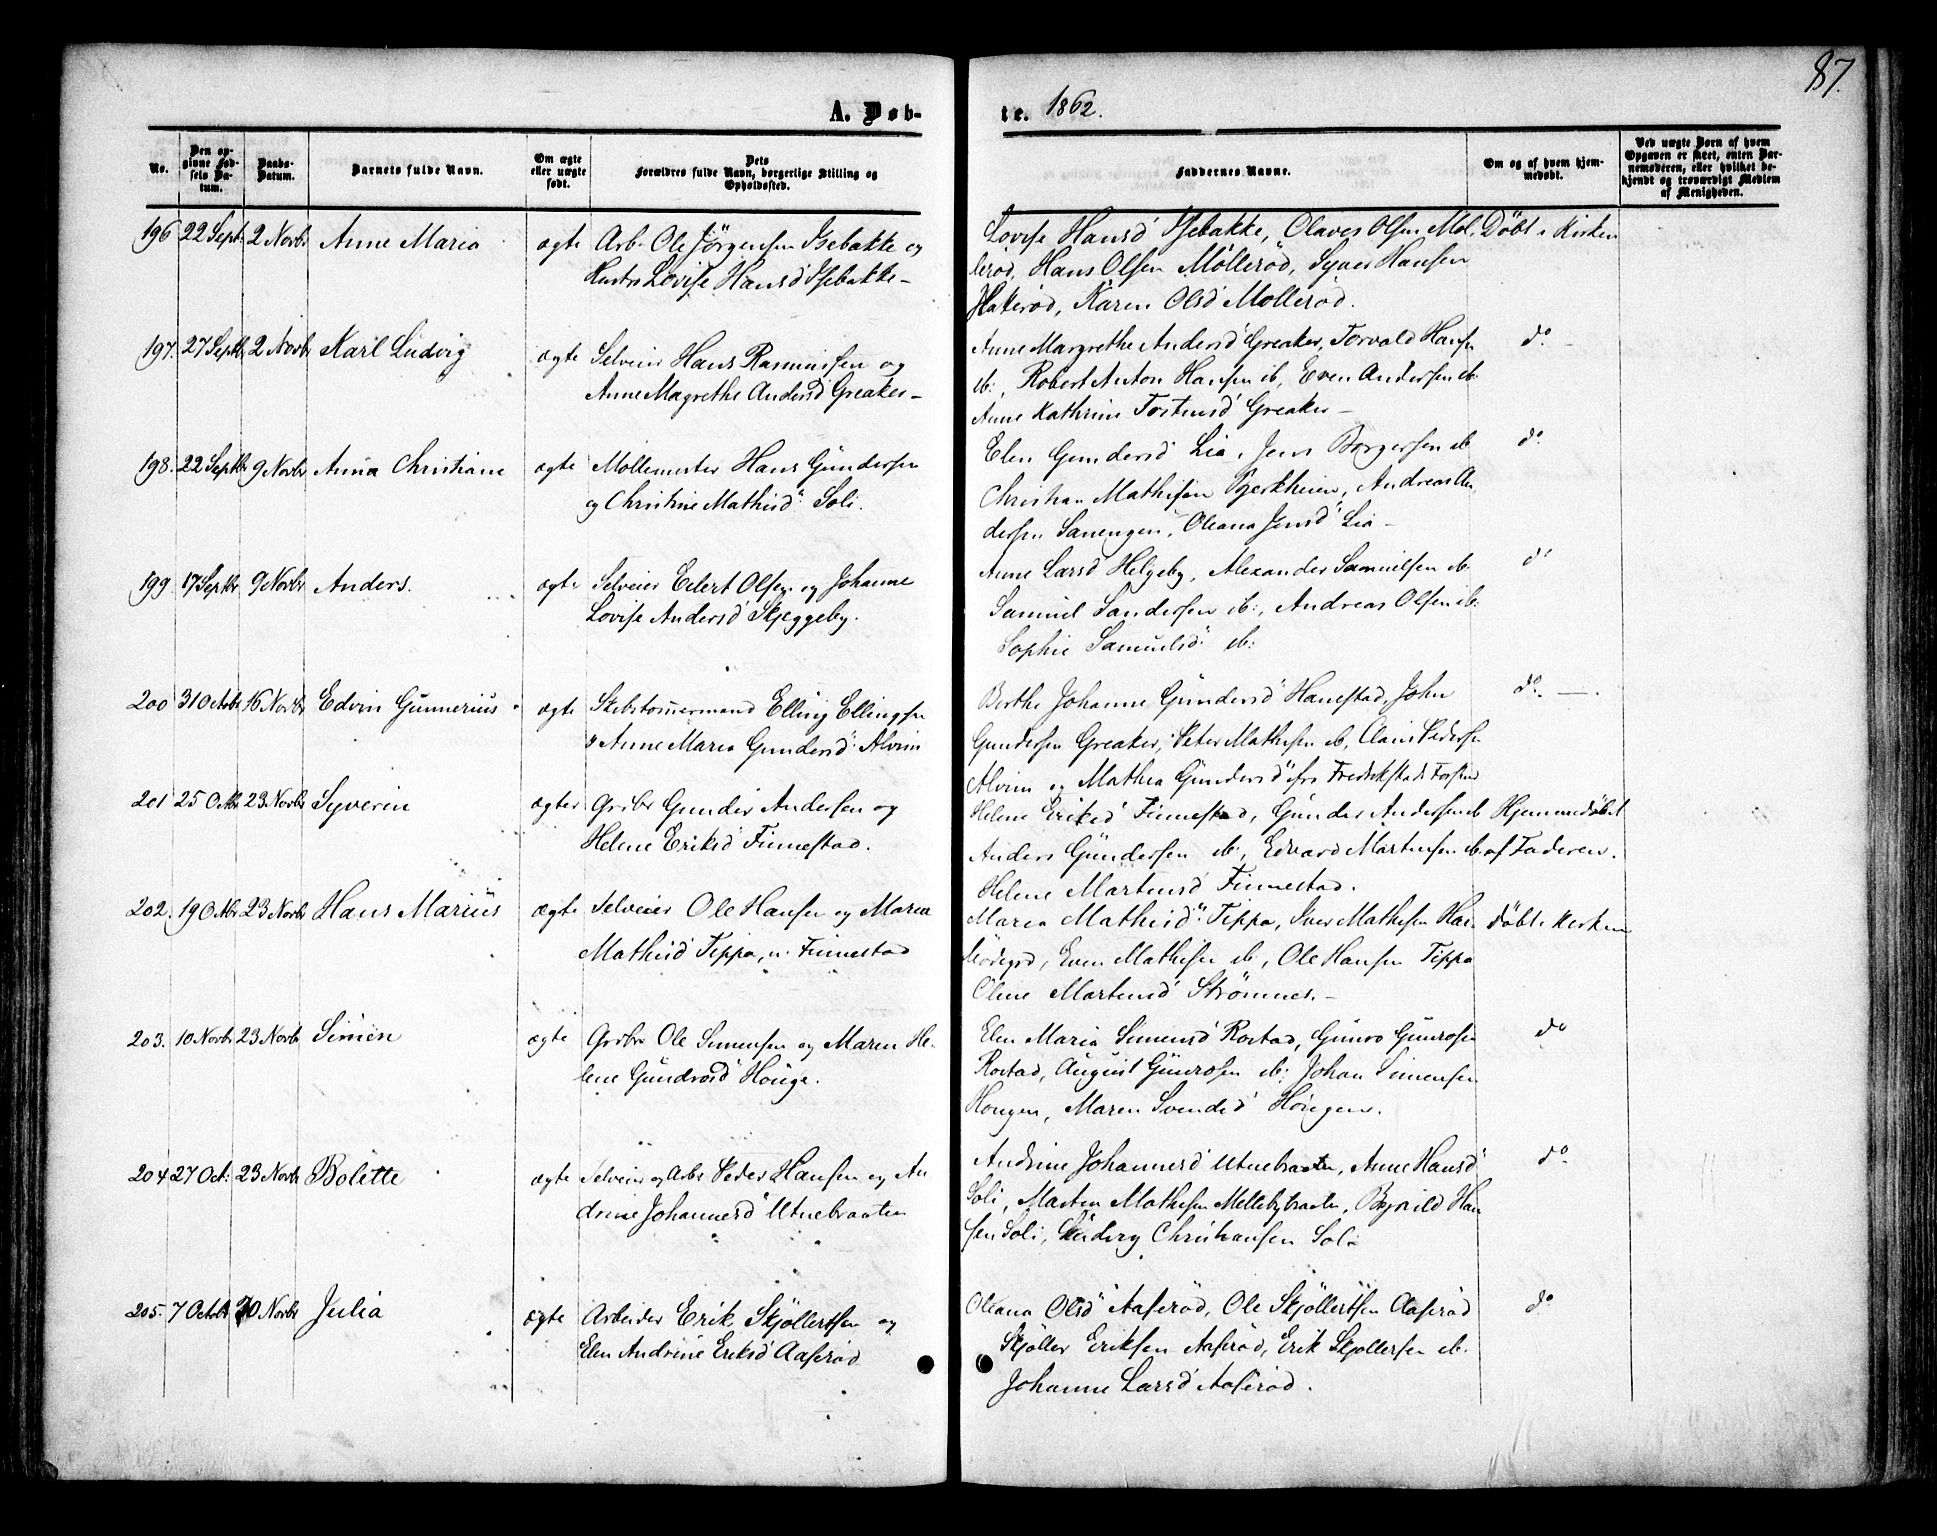 87.
A. Døb-
te. 1862.
No.
Den op-
givne Fød-
sels Da-
tum.
Daabs-
Datum.
Barnets fulde Navn.
Om ægte
eller uægte
født.
Dets
Forældres fulde Navn, borgerlige Stilling og
Opholdssted.
Faddernes Navne.
Om og af hvem hjem-
medøbt.
Ved uægte Børn af hvem
Opgaven er skeet, enten Bar-
nemoderen, eller hvilket be-
kjendt og troværdigt Medlem
af Menigheden.
196 22 Sept. 2 Novbr Anne Maria ægte Arb. Ole Jörgensen Isebakke og
Hustr Lovise Hansd Isebakke-
Lovise Hansd Isebakke, Olaves Olsen Möl- Döbt i Kirken
leröd, Hans Olsen Mölleröd, Syver Hansen
Hakeröd, Karen Olsd Mölleröd.
197. 27 Septbr 2 Novbr Karl Ludvig ægte Selveier Hans Rasmussen og
Anne Magrethe Andersd Greaker-
Anne Margrethe Andersd Greaker, Torvald Hansen do. -
ib:, Robert Anton Hansen ib, Even Andersen ib.
Anne Kathrine Torstensd Greaker-
198. 22 Septbr 9 Novbr Anna Christiane ægte Möllemester Hans Gundersen
og Christine Mathisd Soli.
Elen Gundersd Lia, Jens Borgersen ib do.
Christian Mathisen Bjerkheien, Andreas An-
dersen Sanengen, Oleana Jensd Lia-
199. 17 Septbr 9 Novbr Anders. ægte Selveier Edert Olsen og Johanne
Lovise Andersd Skjeggeby.
Anne Larsd Helgeby, Alexander Samuelsen ib. do
Samuel Sandersen ib:, Andreas Olsen ib:
Sophie Samuelsd ib:
200 31 Octobr 16 Novbr Edvin Gunnerius ægte Skibstömermand Elling Ellingsen
& Anne Maria Gundersd Alvim
Berthe Johanne Gundersd Hanestad, John do. -
Gundersen Greaker, Peter Mathisen ib, Claus Pedersen
Alvim og Mathea Gundersd fra Fredrikstads Forstad
201 25 Octbr 23 Novbr Syverin ægte Grdbr Gunder Andersen og
Helene Eriksd Finnestad.
Helene Eriksd Finnestad, Gunder Andersen ib Hjemmedöbt
Anders Gundersen ib, Edvard Martinsen ib. af Faderen.
Helene Martinsd Finnestad.
202. 19 Octbr 23 Novbr Hans Marius ægte Selveier Ole Hansen og Maren
Mathisd Tippa, u. Finnestad
Maren Mathisd Tippa, Iver Mathisen Har- Döbt i Kirken
, Even Mathisen ib, Ole Hansen Tippa
Oline Martinsd Strömnes. -
203. 10 Novbr 23 Novbr Simen ægte Grdbr Ole Simensen og Maren He-
lene Gundrosd Houge.
Elen Maria Simensd Rostad, Gunro Gunrosen do
Rostad, August Gunrosen ib: Johan Simensen
Hougen, Maren Svendsd Hougen.
204 27 Oct: 23 Novbr Bolette ægte Selveier og Arb. Peder Hansen og An-
drine Johannesd Utnebraaten
Andrine Johannesd Utnebraaten, Anne Hansd do.
Soli, Martin Mathisen Mellebybraaten, Bynild Han-
sen Soli, Christiansen Soli
205. 7 Octobr 30 Novbr Julia ægte Arbeider Erik Skjöllertsen og
Elen Andrine Eriksd Aaseröd
Oleana Olsd Aaseröd, Ole Skjöllertsen Aaseröd do
Skjöller Eriksen Aaseröd, Erik Skjöllersen ib.
Johanne Larsd Aaseröd.